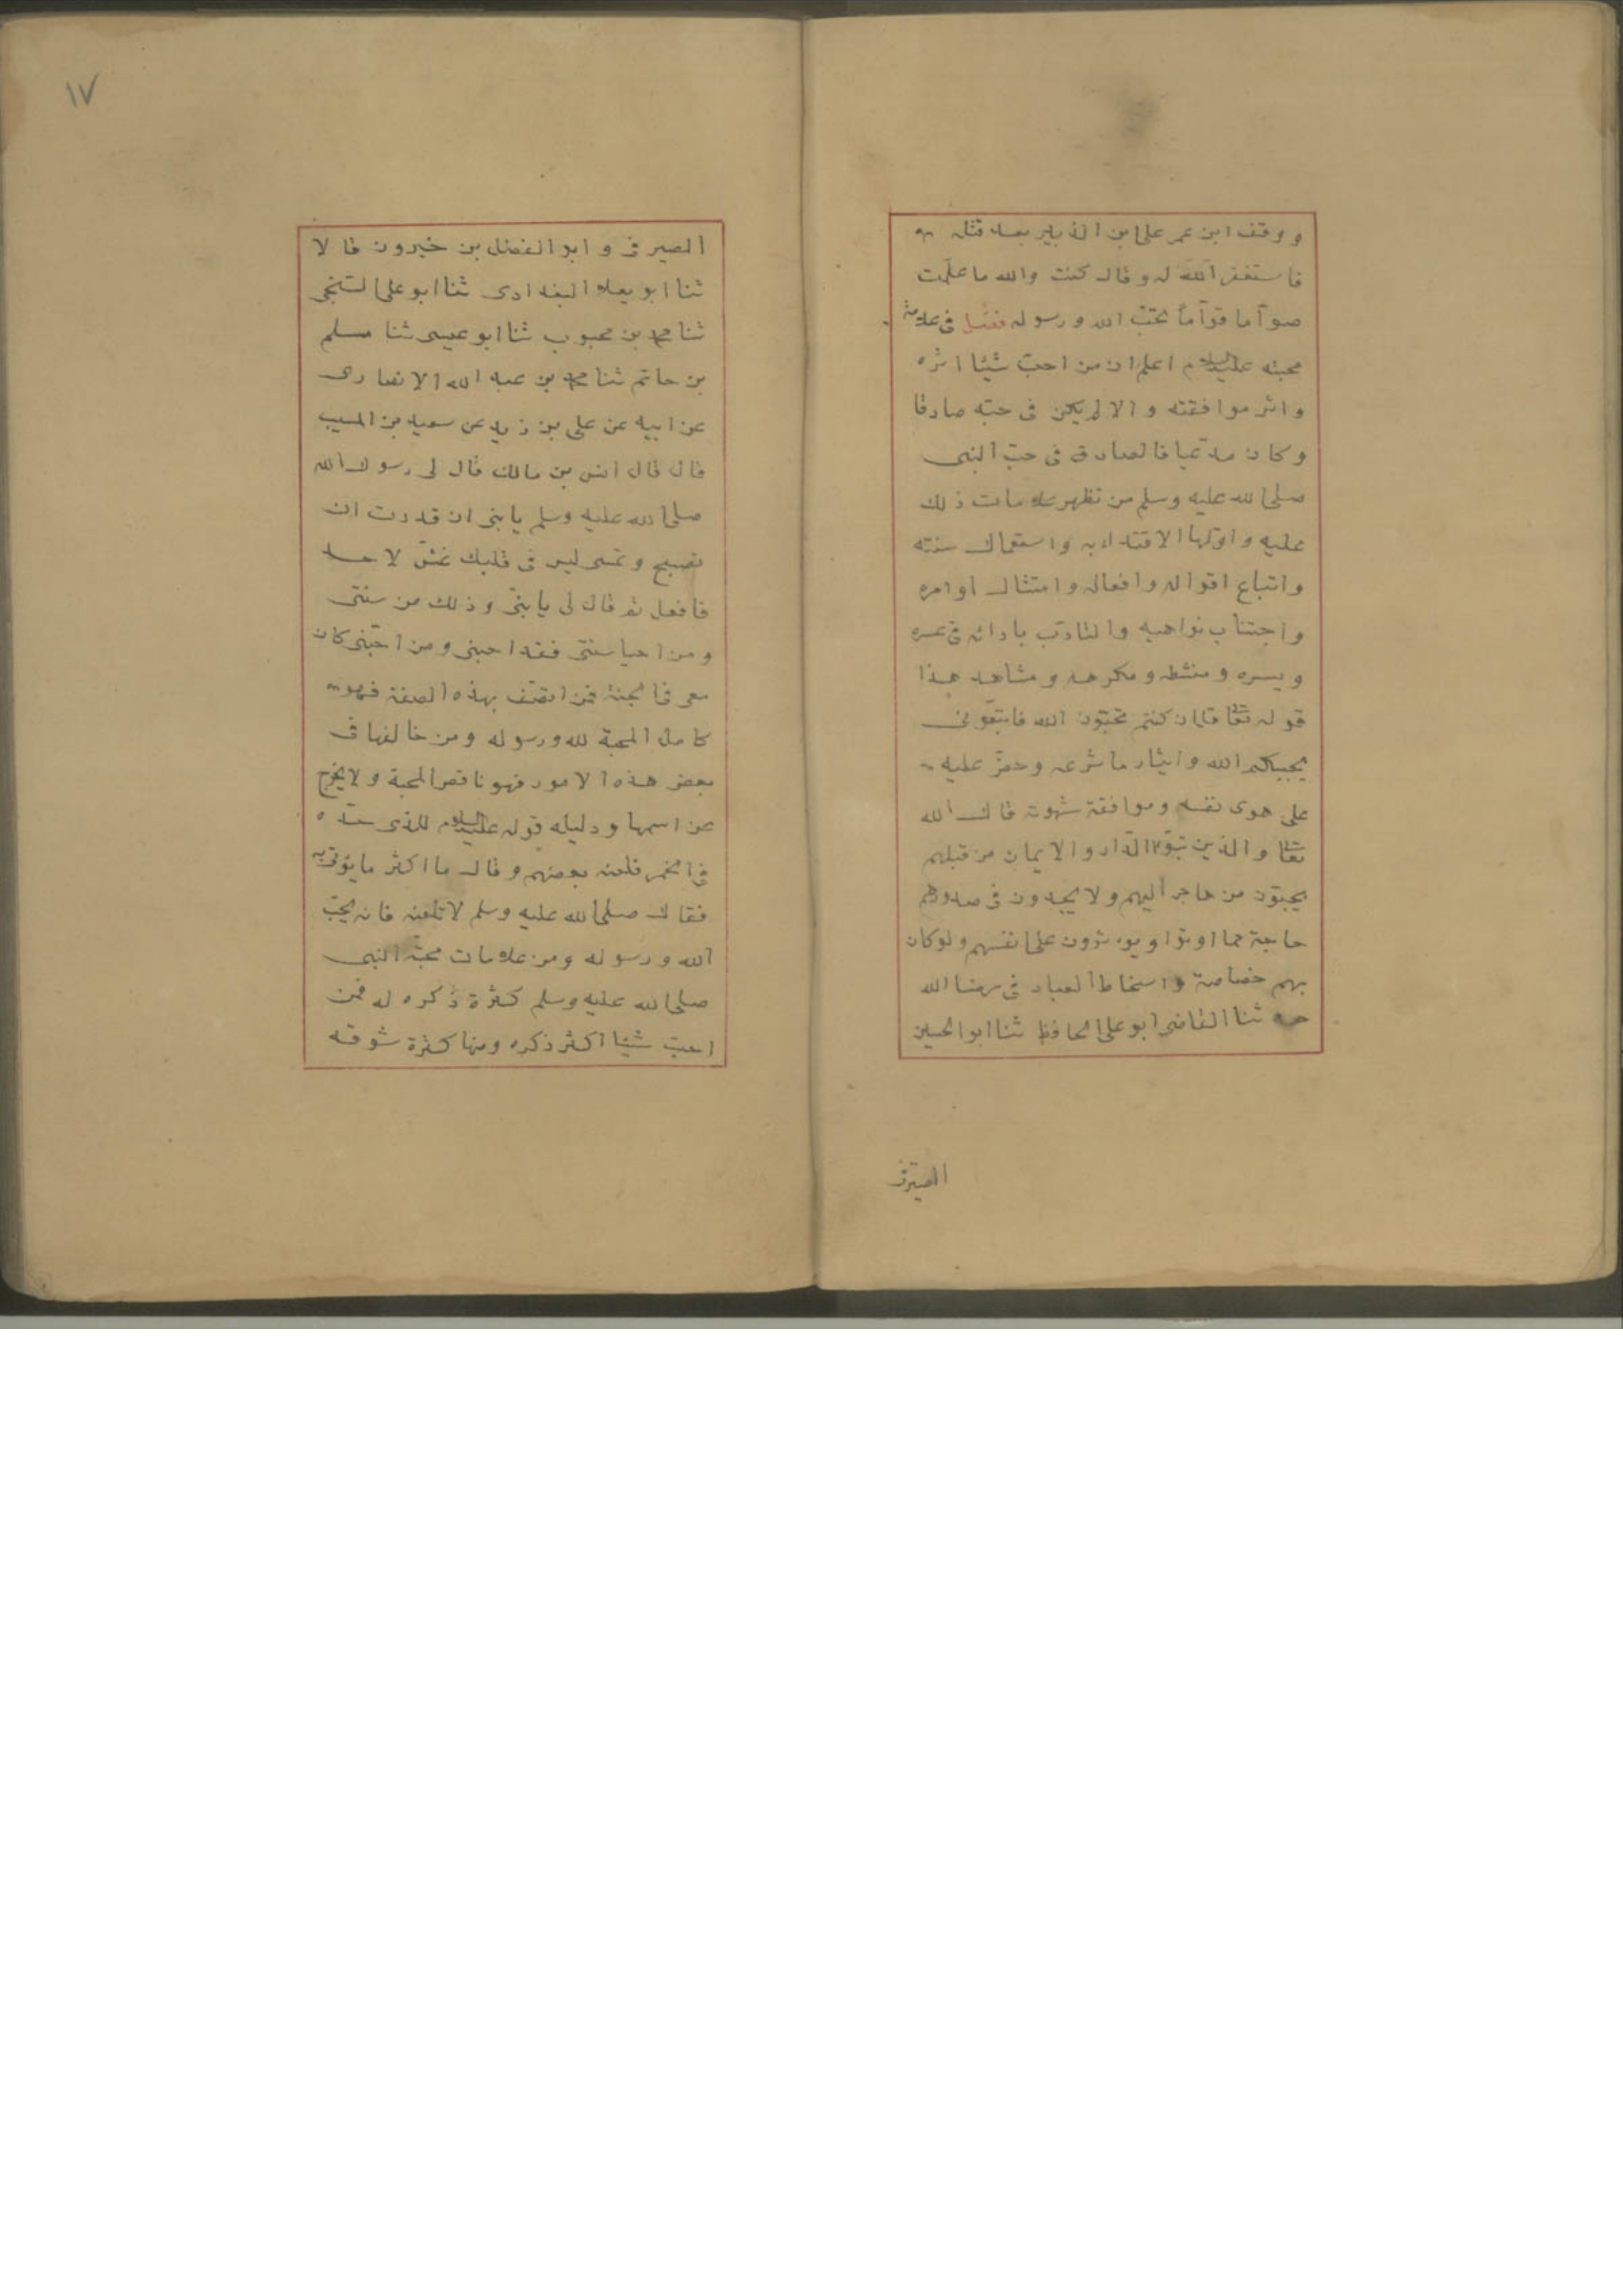 ووقف ابن عمر على ابن الزبير بعد قتله
فاستغفر الله له وقال كنت والله ما علمت
صوّاما قوّاماً تحبّ الله ورسوله فصل فى علامة
محبته عليه السلام اعلم ان من احبّ شيئا اثره
واثر موافقته والا لم يكن فى حبّه صادقا
وكان مدّعيا فالصادق فى حبّ النبى
صلى الله عليه وسلم من تظهر علامات ذلك
عليه واوّلها الاقتداء به واستعمال سنته
واتباع اقواله وافعاله وامتثال اوامره
واجتناب نواهيه والتادّب بادابه فى عسره
ويسره ومنشطه ومكرهه وشاهد هذا
قوله تعا قل ان كنتم تحبّون الله فاتبعونى
يحببكم الله وايثار ما شرعه وحضّ عليه
على هوى نفسه وموافقة شهوته قال الله
تعا والذين تبوّؤا الدّار والايمان من قبلهم
يحبّون من هاجر اليهم ولا يجدون فى صدورهم
حاجة مما اوتوا ويوثرون على انفسهم ولو كان
بهم خصاصة واسخاط العباد فى رضا الله
حدثنا القاضى ابو على الحافظ ثنا ابو الحسين
الصيرفى
١٧
الصيرفى وابو الفضل بن خيرون قالا
ثنا ابو يعلا البغدادى ثنا ابو على السّنجى
ثنا محمد بن محبوب ثنا ابو عيسى ثنا مسلم
بن حاتم ثنا محمد بن عبد الله الانصارى
عن ابيه عن على بن زيد عن سعيد بن المسيب
قال قال انس بن مالك قال لى رسول الله
صلى الله عليه وسلم يا بنى ان قدرت ان
تصبح وتمسى ليس فى قلبك غشّ لاحد
فافعل ثم قال لى يا بنىّ وذلك من سنتى
ومن احيا سنتى فقد احبنى ومن احبّنى كان
معى فى الجنة فمن اتصّف بهذه الصفة فهو
كامل المحبة لله ورسوله ومن خالفها فى
بعض هذه الامور فهو ناقص المحبة ولا يخرج
عن اسمها ودليله قوله عليه السلام للذى حدّه
فى الخمر فلعنه بعضهم وقال ما اكثر ما يؤتى به
فقال صلى الله عليه وسلم لا تلعنه فانه يحبّ
الله ورسوله ومن علامات محبّة النبى
صلى الله عليه وسلم كثرة ذكره له فمن
احبّ شيئا اكثر ذكره ومنها كثرة شوقه